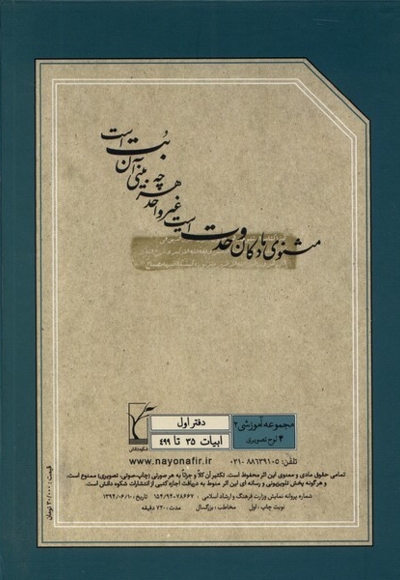 مثنوی ما دکان وحدت است
غیر واحد هرچه بینی آن بُت است
مجموعه آموزشی ۲
۴ لوح تصویری
دفتر اول
ابیات ۳۵ تا ۴۹۹
شکوه دانش
www.nayonafir.ir
تلفن: ۸۸۶۳۹۱۰۵ -۰۲۱
تمامی حقوق مادی و معنوی این اثر محفوظ است. تکثیر آن کلاً و جزئاً به هر صورتی (چاپ، صوتی، تصویری) ممنوع است.
و هرگونه پخش تلویزیونی و رسانه ای این اثر منوط به دریافت اجازه کتبی از انتشارات شکوه دانش است.
شماره پروانه نمایش وزارت فرهنگ و ارشاد اسلامی ۱۵۴/۹۴-۷۸۶۶۷ تاریخ: ۱۳۹۴/۰۶/۱۰
نوبت چاپ: اول مخاطب: بزرگسال مدت: ۷۲۰ دقیقه
قیمت: ۳۰/۰۰۰ تومان